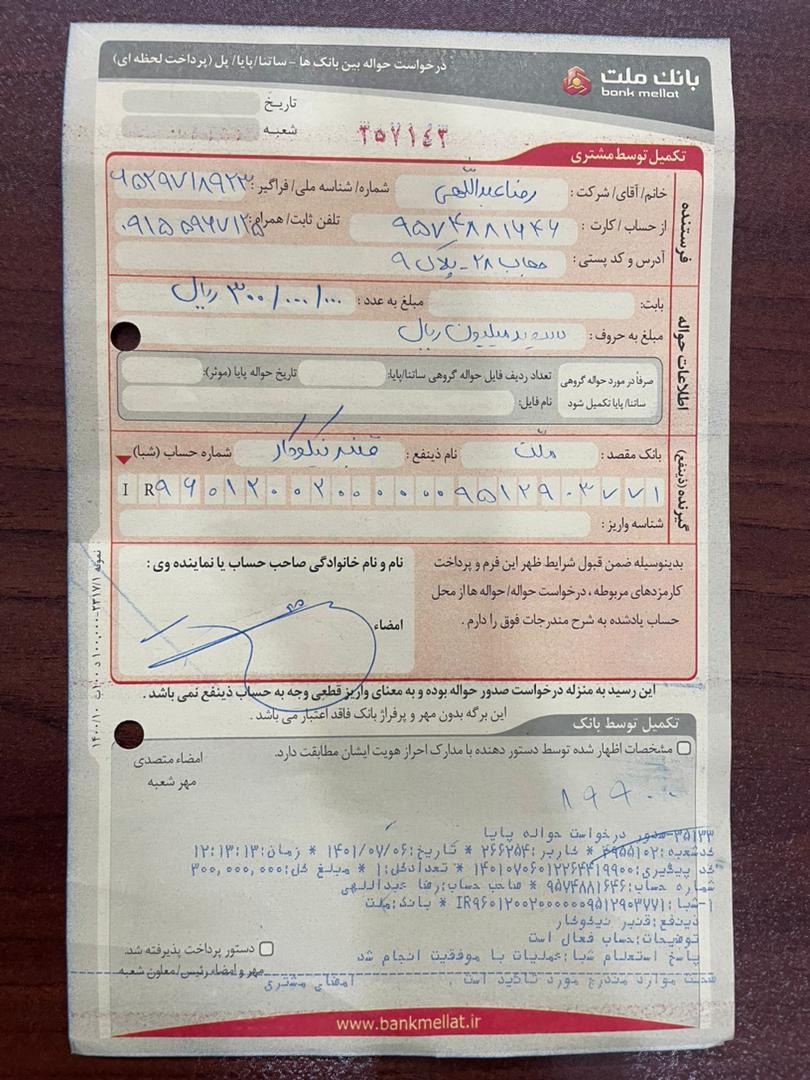 درخواست حواله بین بانک ها - ساتنا/پایا/ پل (پرداخت لحظه ای)
بانک ملت
bank mellat
تاریخ
شعبه
۳۵۷۱۴۳
تکمیل توسط مشتری
فرستنده
خانم/ آقای/ شرکت: رضا عبداللهی شماره/ شناسه ملی/ فراگیر:
از حساب/ کارت: ۹۵۷۴۸۸۱۶۴۶ تلفن ثابت/ همراه:
آدرس و کد پستی: ۲۸ - پلاک ۹
اطلاعات حواله
بابت: مبلغ به عدد: ۳۰۰/۰۰۰/۰۰۰ ریال
مبلغ به حروف: سیصد میلیون ریال
صرفاً در مورد حواله گروهی ساتنا/ پایا تکمیل شود
تعداد ردیف فایل حواله گروهی ساتنا/پایا: تاریخ حواله پایا (موثر):
نام فایل:
گیرنده (ذینفع)
بانک مقصد: ملت نام ذینفع: قنبر نیکوکار شماره حساب (شبا)
IR ۹۶۰۱۲۰۰۲۰۰۰۰۰۰۰۹۵۱۲۹۰۳۷۷۱
شناسه واریز:
بدینوسیله ضمن قبول شرایط ظهر این فرم و پرداخت
کارمزدهای مربوطه، درخواست حواله/ حواله ها از محل
حساب یادشده به شرح مندرجات فوق را دارم.
نام و نام خانوادگی صاحب حساب یا نماینده وی:
امضاء
این رسید به منزله درخواست صدور حواله بوده و به معنای واریز قطعی وجه به حساب ذینفع نمی باشد.
این برگه بدون مهر و پرفراژ بانک فاقد اعتبار می باشد.
تکمیل توسط بانک
مشخصات اظهار شده توسط دستور دهنده با مدارک احراز هویت ایشان مطابقت دارد.
امضاء متصدی
مهر شعبه
۱۹۹۰۰
۳۵۱۳۳-صدور درخواست حواله پایا
کدشعبه:۴۹۵۵۱۰۲ * کاربر:۲۶۶۲۵۴ * تاریخ:۱۴۰۱/۰۷/۰۶ * زمان:۱۲:۱۳:۱۳
کد پیگیری:۱۴۰۱۰۷۰۶۰۱۲۲۶۴۴۱۹۹۰۰ * تعدادکل:۱ * مبلغ کل:۳۰۰,۰۰۰,۰۰۰
شماره حساب:۹۵۷۴۸۸۱۶۴۶ * صاحب حساب:رضا عبداللهی
۱-شبا:IR۹۶۰۱۲۰۰۲۰۰۰۰۰۰۰۹۵۱۲۹۰۳۷۷۱ * بانک:ملت
ذینفع:قنبر نیکوکار
توضیحات:حساب فعال است
پاسخ استعلام شبا:عملیات با موفقیت انجام شد
صحت موارد مندرج مورد تائید است . امضای مشتری
دستور پرداخت پذیرفته شد.
مهر و امضاء رئیس/ معاون شعبه
www.bankmellat.ir